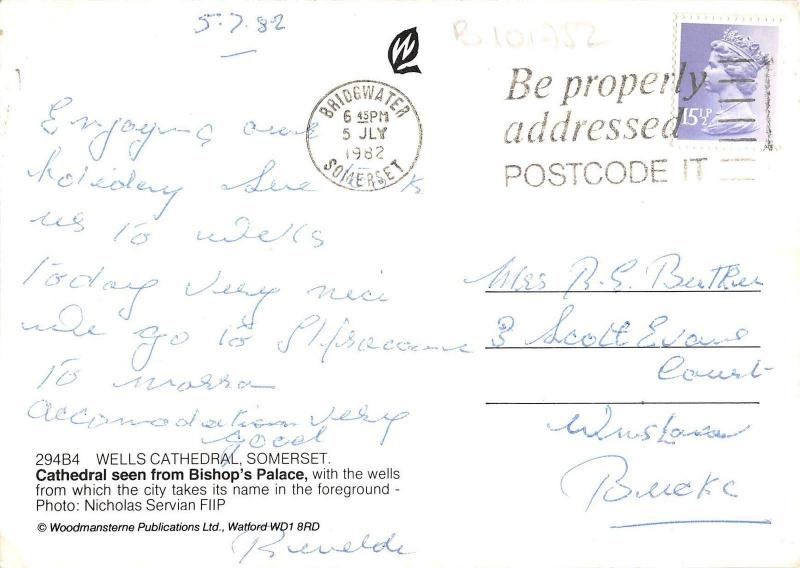 5.7.82
B101752
BRIDGWATER
6 45PM
5 JLY
1982
SOMERSET
Be properly
addressed
POSTCODE IT
15½P
Enjoying our
holiday
us to wells
today very nice
we go to Ilfracombe
to morra
accomodation very
good
Mrs R.E.
3 Scott Evans
Court
Winslow
Bucks
294B4 WELLS CATHEDRAL, SOMERSET.
Cathedral seen from Bishop's Palace, with the wells
from which the city takes its name in the foreground -
Photo: Nicholas Servian FIIP
© Woodmansterne Publications Ltd., Watford WD1 8RD